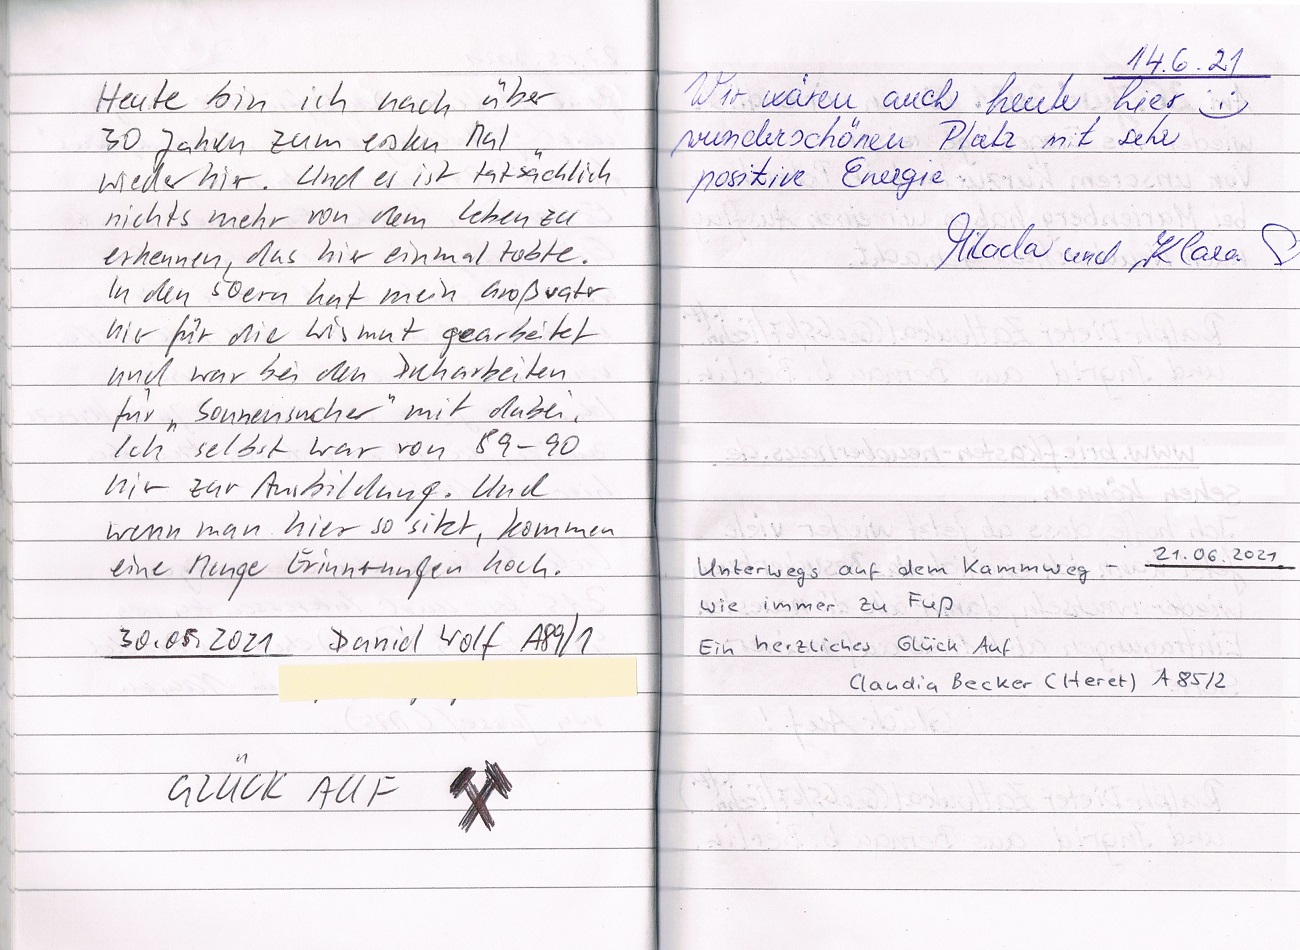 Heute bin ich nach über
30 Jahren zum ersten Mal
wieder hier. Und es ist tatsächlich
nichts mehr von dem Leben zu
erkennen, das hier einmal tobte.
In den 50ern hat mein Großvater
hier für die Wismut gearbeitet
und war bei den Dreharbeiten
für „Sonnensucher“ mit dabei.
Ich selbst war von 89-90
hier zur Ausbildung. Und
wenn man hier so sitzt, kommen
eine Menge Erinnerungen hoch.
30.05.2021 Daniel Wolf A89/1
GLÜCK AUF
14.6.21
Wir wären auch heute hier :)
wunderschönen Platz mit sehr
positive Energie
und Klara
21.06.2021
Unterwegs auf dem Kammweg -
wie immer zu Fuß
Ein herzliches Glück Auf
Claudia Becker (Heret) A 85/2